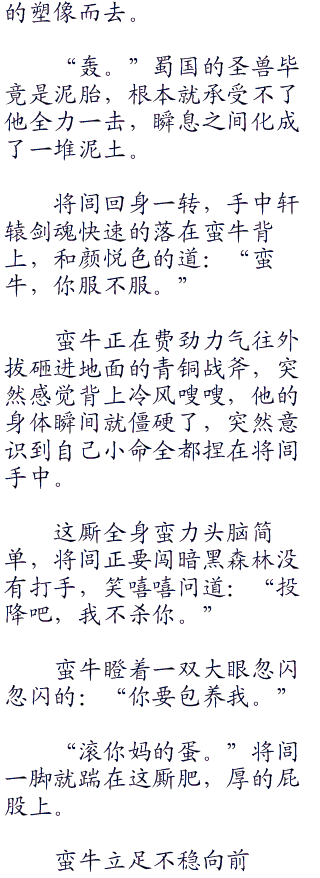 的塑像而去。
“轰。”蜀国的圣兽毕
竟是泥胎，根本就承受不了
他全力一击，瞬息之间化成
了一堆泥土。
将闾回身一转，手中轩
辕剑魂快速的落在蛮牛背
上，和颜悦色的道：“蛮
牛，你服不服。”
蛮牛正在费劲力气往外
拔砸进地面的青铜战斧，突
然感觉背上冷风嗖嗖，他的
身体瞬间就僵硬了，突然意
识到自己小命全都捏在将闾
手中。
这厮全身蛮力头脑简
单，将闾正要闯暗黑森林没
有打手，笑嘻嘻问道：“投
降吧，我不杀你。”
蛮牛瞪着一双大眼忽闪
忽闪的：“你要包养我。”
“滚你妈的蛋。”将闾
一脚就踹在这厮肥，厚的屁
股上。
蛮牛立足不稳向前